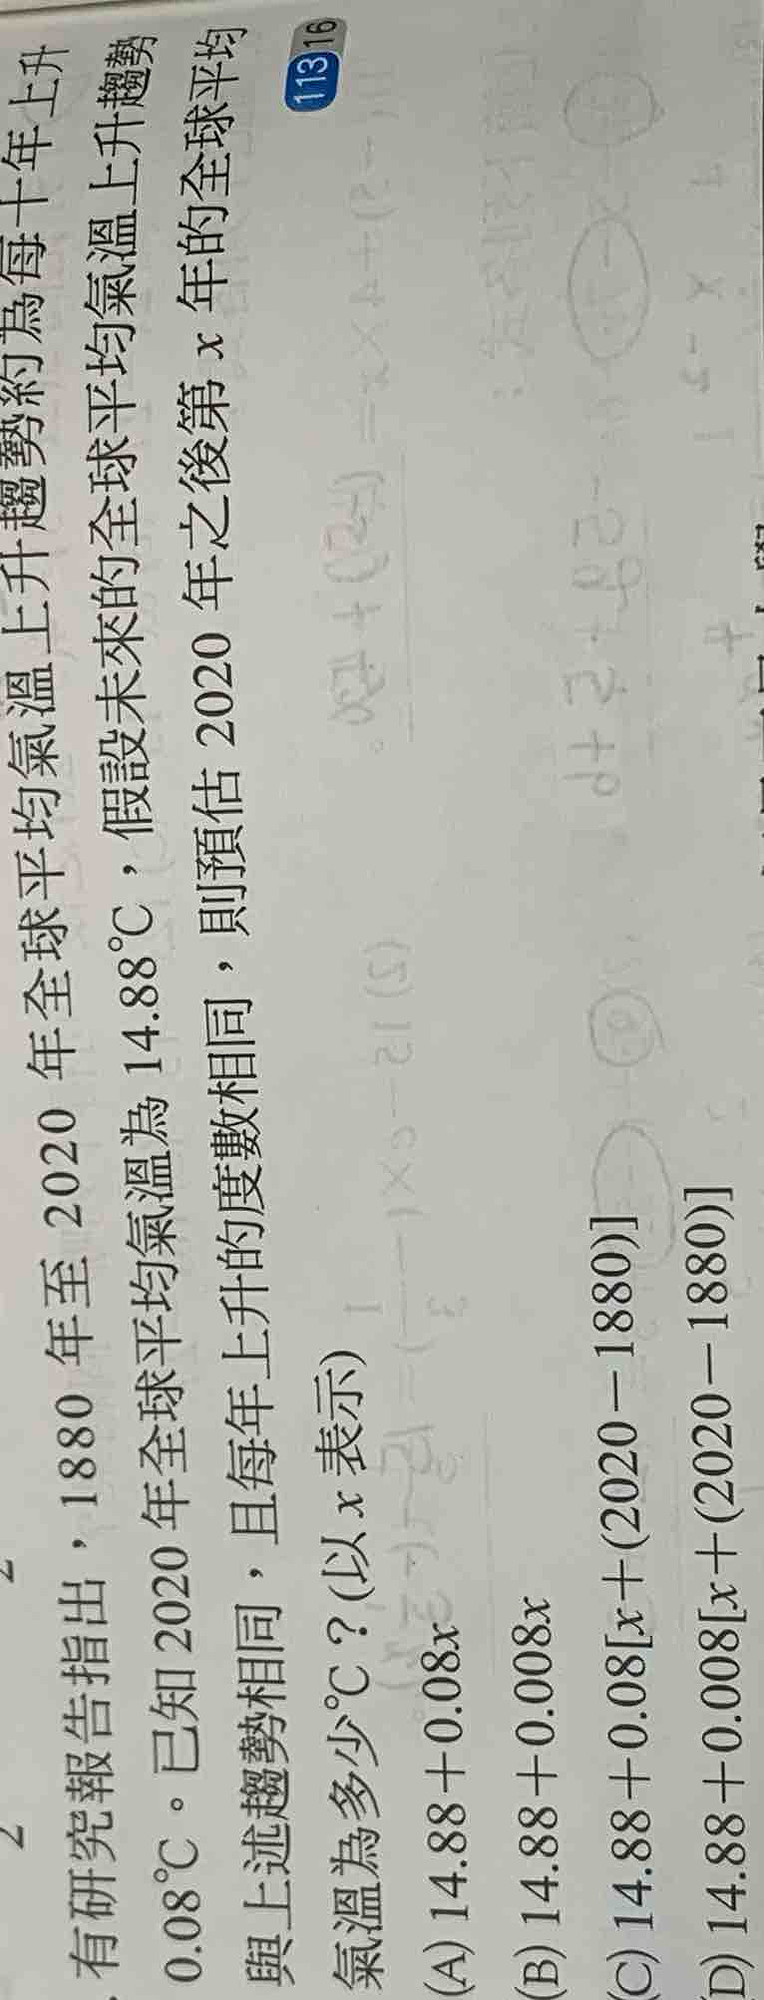 有研究報告指出，1880 年至 2020 年全球平均氣溫上升趨勢約為每十年上升
0.08℃。已知 2020 年全球平均氣溫為 14.88℃，假設未來的全球平均氣溫上升趨勢
與上述趨勢相同，且每年上升的度數相同，則預估 2020 年之後第 x 年的全球平均
氣溫為多少℃？(以 x 表示)
113 16
(A) 14.88＋0.08x
(B) 14.88＋0.008x
(C) 14.88＋0.08[x＋(2020－1880)]
(D) 14.88＋0.008[x＋(2020－1880)]